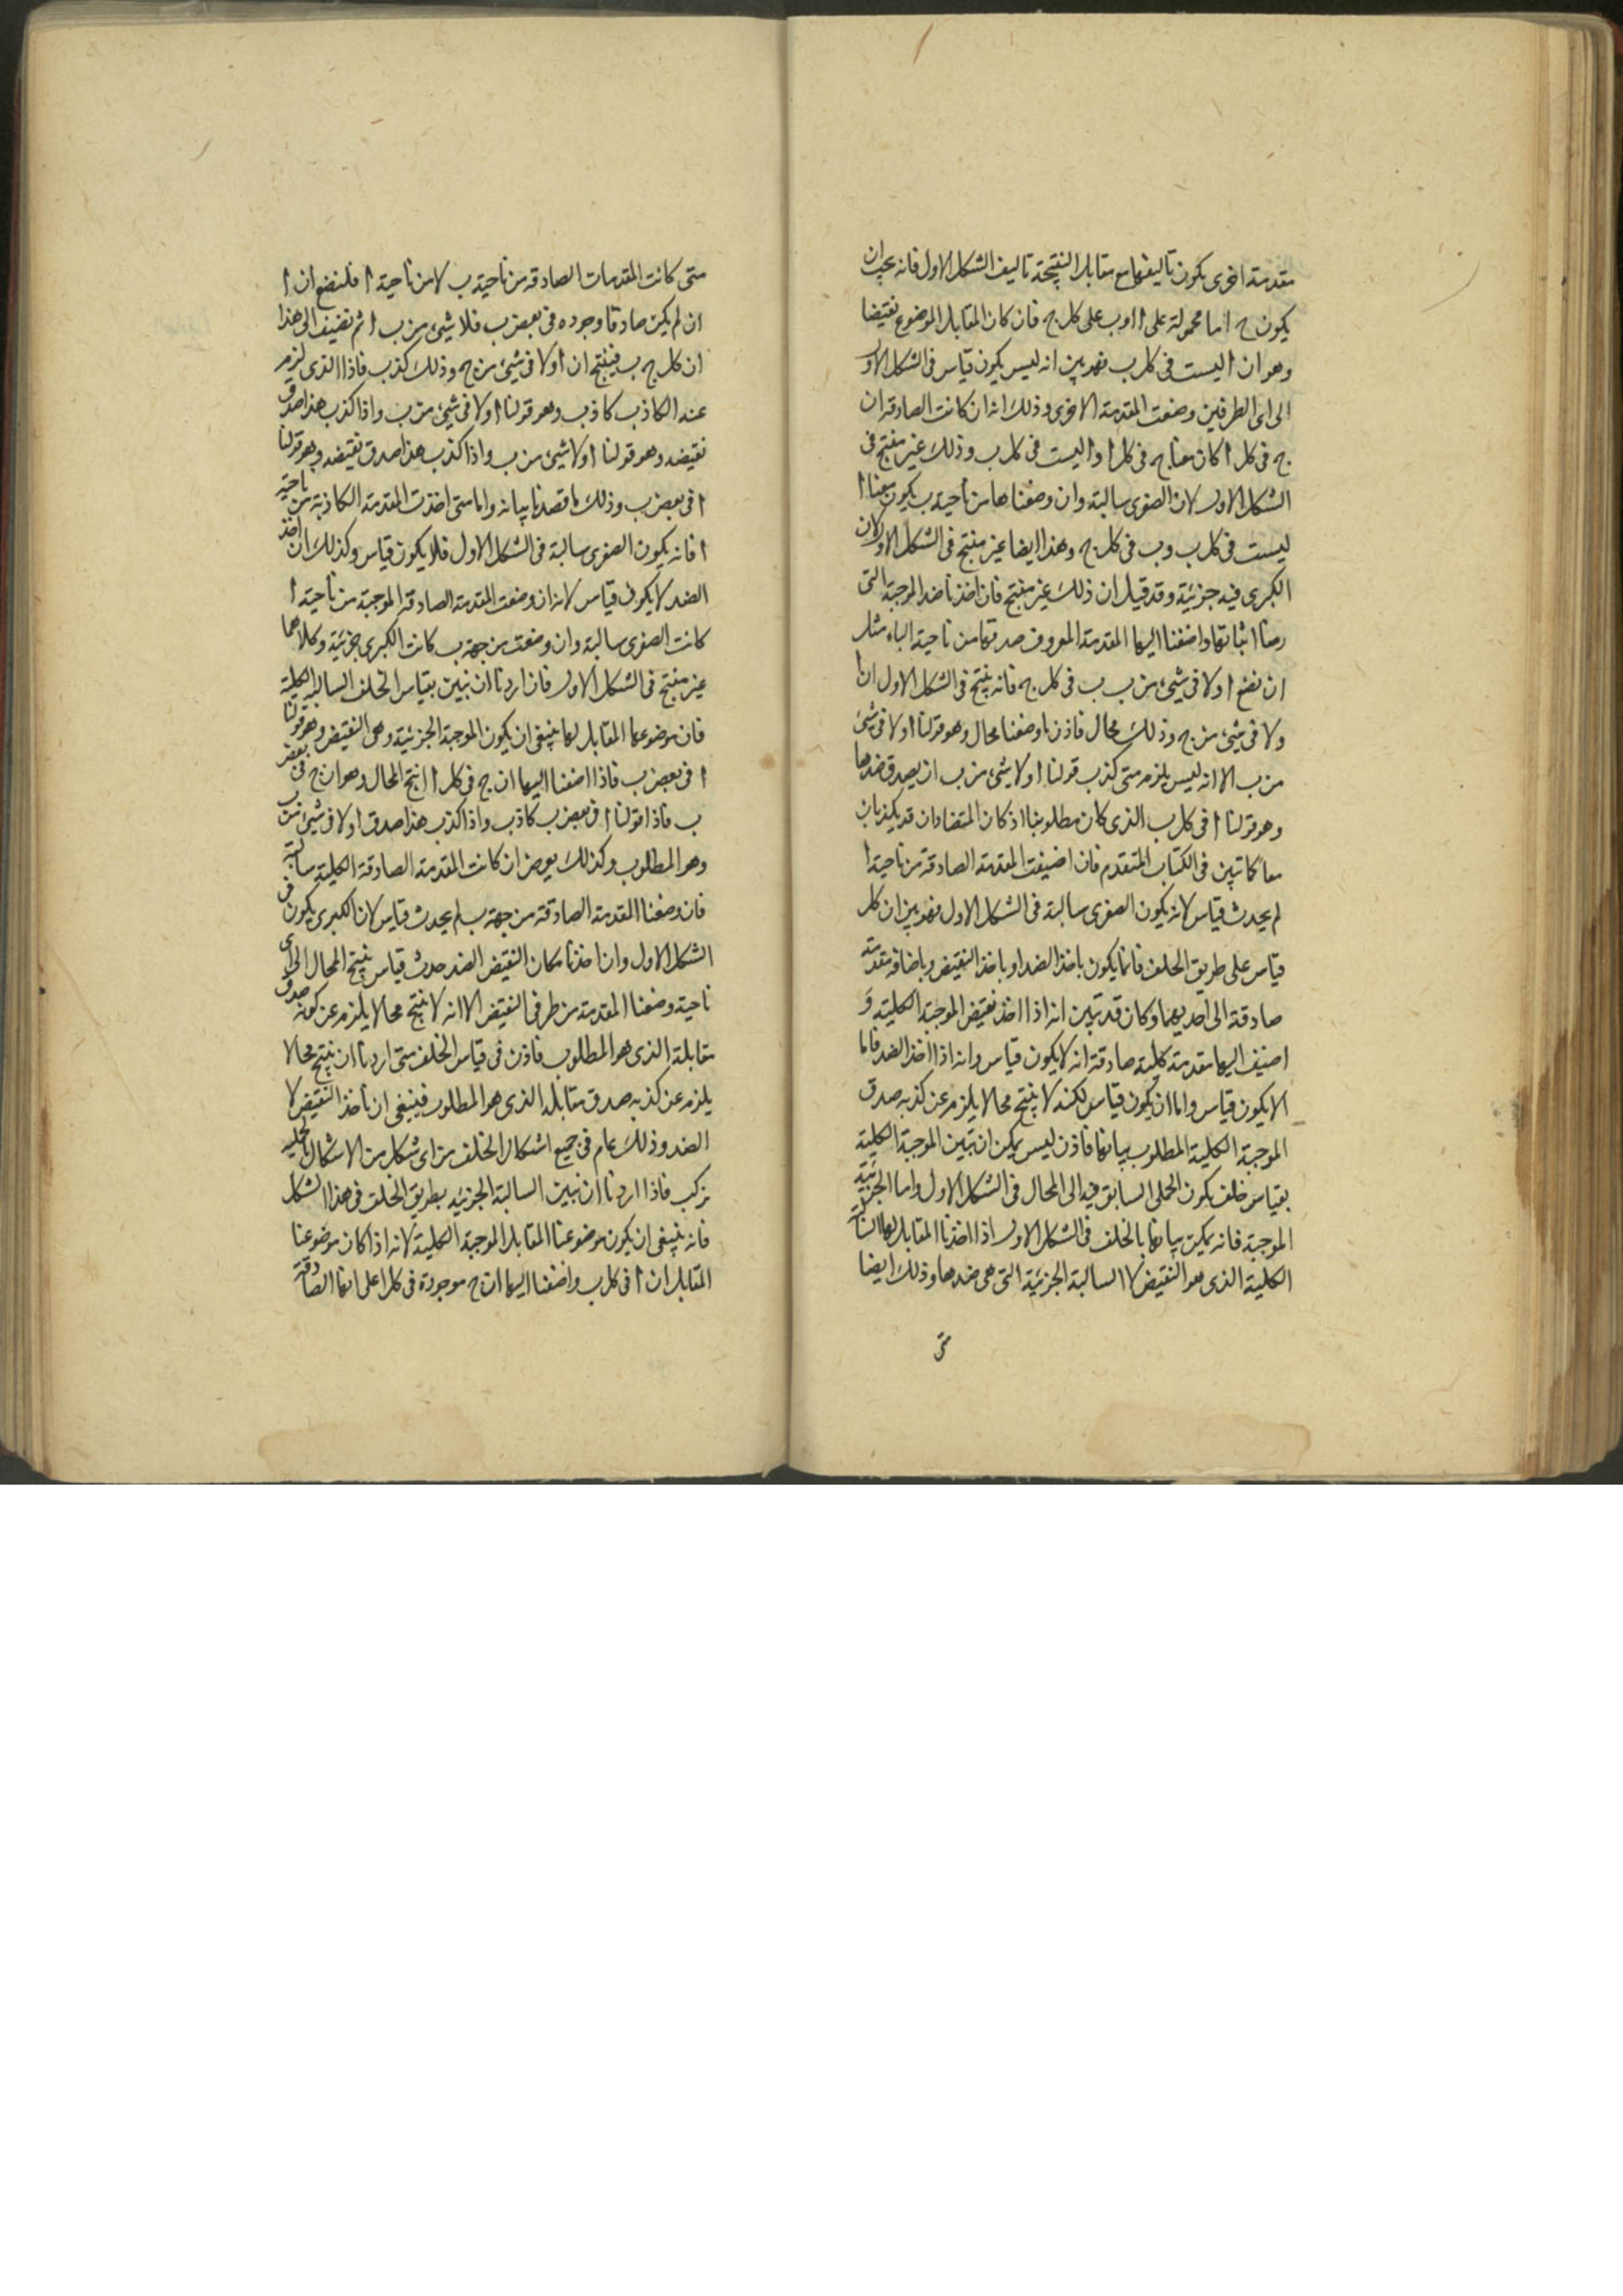 مقدمة اخرى يكون تاليفها مع مقابل النتيجة تاليف الشكل الاول فانه يجب ان
يكون ج اما محمولة على ا او ب على كل ج فان كان المقابل الموضوع نقيضا
وهو ان ا ليست فى كل ب فهو بين انه ليس يكون قياس فى الشكل الاول
الى اى الطرفين وضعت المقدمة الاخرى وذلك انه ان كانت الصادقة ان
ج فى كل ا كان معنا ج فى كل ا وا ليست فى كل ب وذلك غير منتج فى
الشكل الاول لان الصغرى سالبة وان وضعناها من ناحية ب يكون معنا ا
ليست فى كل ب وب فى كل ج وهذا ايضا غير منتج فى الشكل الاول لان
الكبرى فيه جزئية وقد قيل ان ذلك غير منتج فان اخذنا ضد الموجبة التى
رمنا اثباتها واضفنا اليها المقدمة المعروف صدقها من ناحية الباء مثل
ان نضع ا ولا فى شىء من ب ب فى كل ج فانه ينتج فى الشكل الاول ان ا
ولا فى شىء من ج وذلك محال فاذن ما وضعنا محال وهو قولنا ا ولا فى شىء
من ب الا انه ليس يلزم متى كذب قولنا ا ولا شىء من ب ان يصدق ضدها
وهو قولنا ا فى كل ب الذى كان مطلوبنا اذ كان المتضادان قد يكذبان
معا كما تبين فى الكتاب المتقدم فان اضيفت المقدمة الصادقة من ناحية ا
لم يحدث قياس لانه يكون الصغرى سالبة فى الشكل الاول فهو بين ان كل
قياس على طريق الخلف فانما يكون باخذ الضد او باخذ النقيض وباضافة مقدمة
صادقة الى احديهما وكان قد تبين انه اذا اخذ نقيض الموجبة الكلية و
اضيف اليها مقدمة كلية صادقة انه لا يكون قياس وانه اذا اخذ الضد فاما
الا يكون قياس واما ان يكون قياس لكنه لا ينتج محالا يلزم عن كذبه صدق
الموجبة الكلية المطلوب بيانها فاذن ليس يمكن ان تبين الموجبة الكلية
بقياس خلف يكون الحملى السابق فيه الى المحال فى الشكل الاول واما الجزئية
الموجبة فانه يمكن بيانها بالخلف فى الشكل الاول اذا اخذنا المقابل لها السالبة
الكلية الذى هو النقيض لا السالبة الجزئية التى هى ضدها وذلك ايضا
متى
متى كانت المقدمات الصادقة من ناحية ب لا من ناحية ا فلنضع ان ا
ان لم يكن صادقا وجوده فى بعض ب فلا شىء من ب ا ثم نضيف الى هذا
ان كل ج ب فينتج ان ا ولا فى شىء من ج وذلك كذب فاذا الذى لزم
عنه الكاذب كاذب وهو قولنا ا ولا فى شىء من ب واذا كذب هذا صدق
نقيضه وهو قولنا ا ولا شىء من ب واذا كذب هذا صدق نقيضه وهو قولنا
ا فى بعض ب وذلك ما قصدنا بيانه واما متى اخذت المقدمة الكاذبة من ناحية
ا فانه يكون الصغرى سالبة فى الشكل الاول فلا يكون قياس وكذلك ان اخذ
الضد لا يكون قياس لانه ان وضعت المقدمة الصادقة الموجبة من ناحية ا
كانت الصغرى سالبة وان وضعت من جهة ب كانت الكبرى جزئية وكلاهما
غير منتج فى الشكل الاول فان اردنا ان نبين بقياس الخلف السالبة الكلية
فان موضوعها المقابل لها ينبغى ان يكون الموجبة الجزئية وهى النقيض وهو قولنا
ا فى بعض ب فاذا اضفنا اليها ان ج فى كل ا انتج المحال وهو ان ج فى بعض
ب فاذا قولنا ا فى بعض ب كاذب واذا كذب هذا صدق ا ولا فى شىء من ب
وهو المطلوب وكذلك يعرض ان كانت المقدمة الصادقة الكلية سالبة
فان وضعنا المقدمة الصادقة من جهة ب لم يحدث قياس لان الكبرى يكون فى
الشكل الاول وان اخذنا مكان النقيض الضد حدث قياس ينتج المحال الى اى
ناحية وضعنا المقدمة من طرفى النقيض الا انه لا ينتج محالا يلزم عن كونه صدق
مقابلة الذى هو المطلوب فاذن فى قياس الخلف متى اردنا ان ينتج محالا
يلزم عن كذبه صدق مقابله الذى هو المطلوب فينبغى ان ناخذ النقيض لا
الضد وذلك عام فى جميع اشكال الخلف من اى شكل من الاشكال الحملية
تركب فاذا اردنا ان نبين السالبة الجزئية بطريق الخلف فى هذا الشكل
فانه ينبغى ان يكون موضوعنا المقابل الموجبة الكلية لانه اذا كان موضوعنا
المقابل ان ا فى كل ب واضفنا اليها ان ج موجودة فى كل ا على انها الصادقة